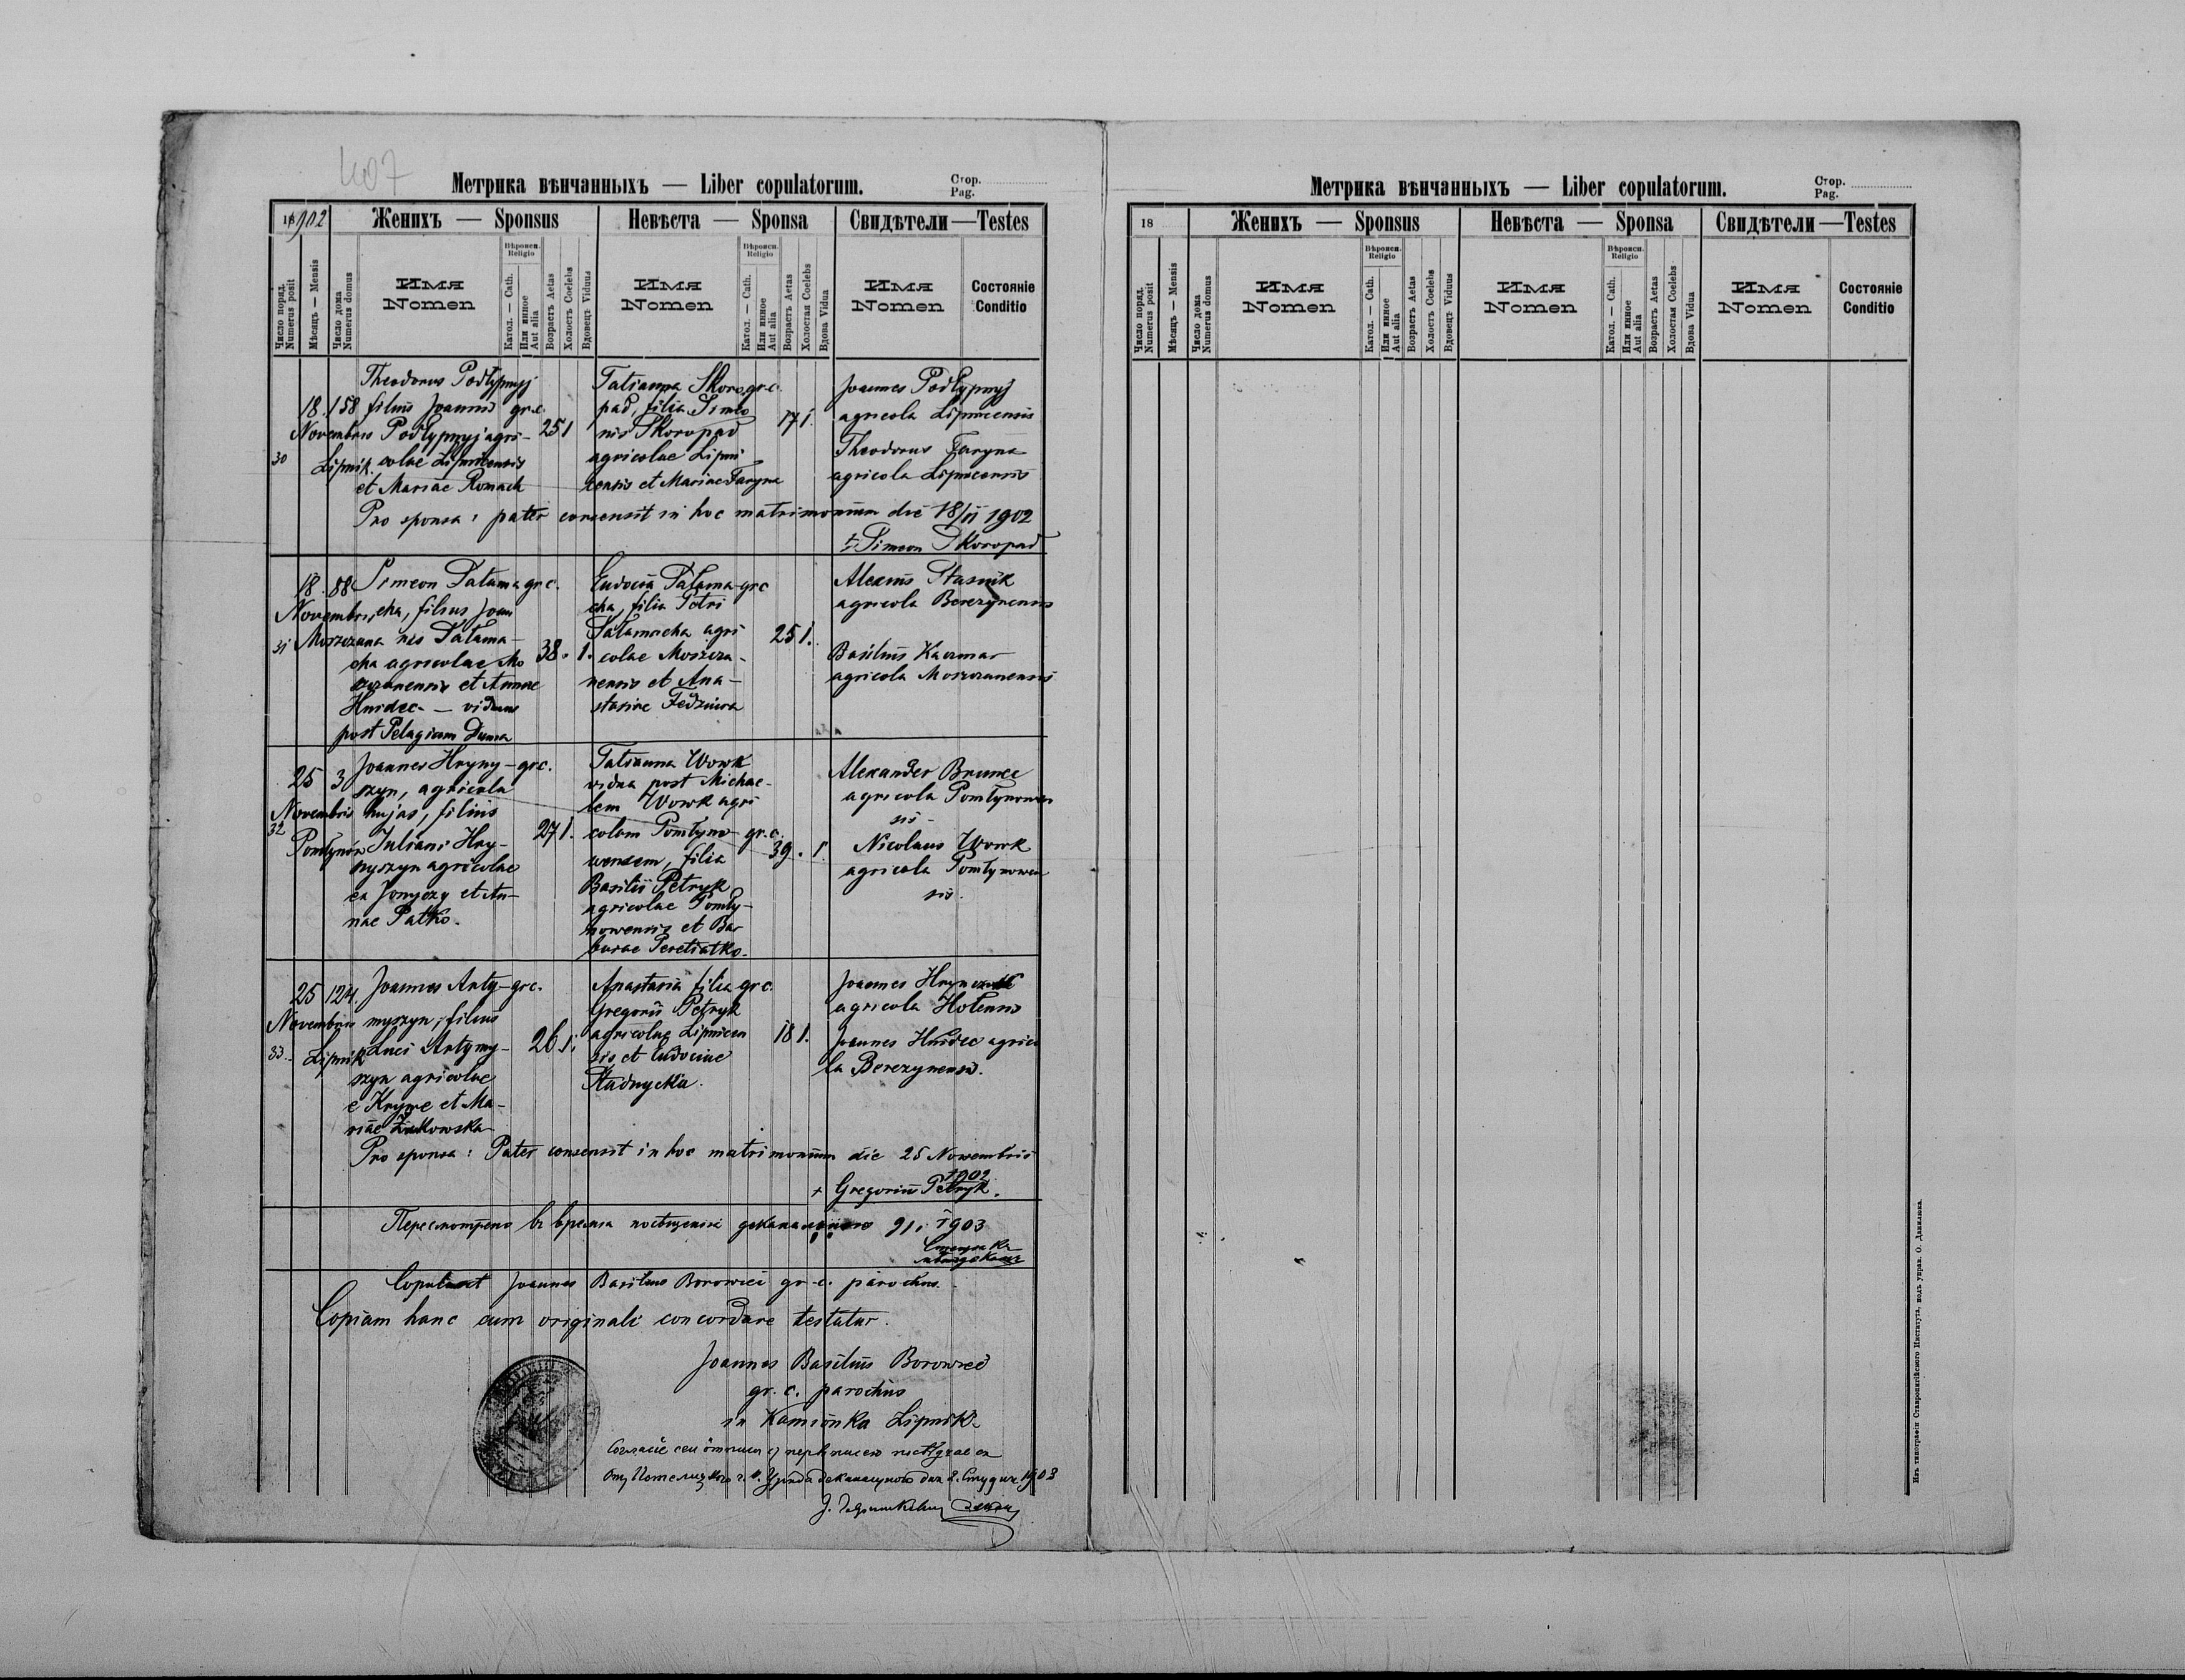 407
Метрика вѣнчанныхъ — Liber copulatorum.
Стор.
Pag.
1902
Женихъ — Sponsus
Невѣста — Sponsa
Свидѣтели — Testes
Число поряд.
Numerus posit
Мѣсяцъ — Mensis
Число дома
Numerus domus
Имя
Nomen
Вѣроисп.
Religio
Катол. — Cath.
Или инное
Aut alia
Возрастъ Aetas
Холостъ Coelebs
Вдовецъ Viduus
Имя
Nomen
Вѣроисп.
Religio
Катол. — Cath.
Или инное
Aut alia
Возрастъ Aetas
Холостая Coelebs
Вдова Vidua
Имя
Nomen
Состояніе
Conditio
30
18.
Novembris
158
Lipnik.
Theodorus Podłypnyj
filius Joannis gr.c.
Podłypnyj agri-
colae Lipnicensis
et Mariae Romach
25 1
Tatianna Skoro gr.c.
pad, filia Simeo
nis Skoropad
agricolae Lipni
censis et Mariae Faryna
17 1.
Joannes Podłypnyj
agricola Lipnicensis
Theodorus Faryna
agricola Lipnicensis
Pro sponsa: pater consensit in hoc matrimonium die 18/11 1902
+ Simeon Skoropad
31
18.
Novembris
88
Moszczana
Simeon Tatama gr.c.
cha, filius Joan
nis Tatama-
cha agricolae Mo
szczanensis et Annae
Hnidec - viduus
post Pelagiam Duma
38. 1.
Eudocia Tatama gr.c
cha, filia Petri
Tatamacha agri
colae Moszcza-
nensis et Ana-
stasiae Fedziura
25 1.
Alexius Stasnik
agricola Berezynensis
Basilius Kaczmar
agricola Moszczanensis
32
25
Novembris
3
Pomłynów
Joannes Hryny- gr.c.
szyn, agricola
hujas, filius
Juliani Hry-
nyszyn agricolae
ex Jonyczy et An-
nae Patko.
27 1.
Tatianna Wowk
vidua post Michae-
lem Wowk agri
colam Pomłyno- gr.c.
wensem, filia
Basilii Petryk
agricolae Pomły-
nowensis et Bar
barae Peretiatko.
39. 1.
Alexander Brunec
agricola Pomłynowen
sis -
Nicolaus Wowk
agricola Pomłynowen
sis.
33.
25
Novembris
124.
Lipnik
Joannes Arty- gr.c.
myszyn, filius
Luci Artymy-
szyn agricolae
e Kryve et Ma-
riae Żukowska
26 1.
Anastasia filia gr.c.
Gregorii Petryk
agricolae Lipnicen
sis et Eudociae
Stadnycka.
18 1.
Joannes Hrynczuk
agricola Hotensis
Joannes Hnidec agrico
la Berezynensis.
Pro sponsa: Pater consensit in hoc matrimonium die 25 Novembris
1902
+ Gregorius Petryk.
Пересмотрено въ время посѣщенія деканального 91. 1903
Copulavit Joannes Basilius Borowiec gr.c. parochus.
Copiam hanc cum originali concordare testatur.
Joannes Basilius Borowiec
gr. c. parochus
in Kamionka Lipnik.
Метрика вѣнчанныхъ — Liber copulatorum.
Стор.
Pag.
18
Женихъ — Sponsus
Невѣста — Sponsa
Свидѣтели — Testes
Число поряд.
Numerus posit
Мѣсяцъ — Mensis
Число дома
Numerus domus
Имя
Nomen
Вѣроисп.
Religio
Катол. — Cath.
Или инное
Aut alia
Возрастъ Aetas
Холостъ Coelebs
Вдовецъ Viduus
Имя
Nomen
Вѣроисп.
Religio
Катол. — Cath.
Или инное
Aut alia
Возрастъ Aetas
Холостая Coelebs
Вдова Vidua
Имя
Nomen
Состояніе
Conditio
Изъ типографіи Ставропигійского Института, подъ управ. О. Данилюка.